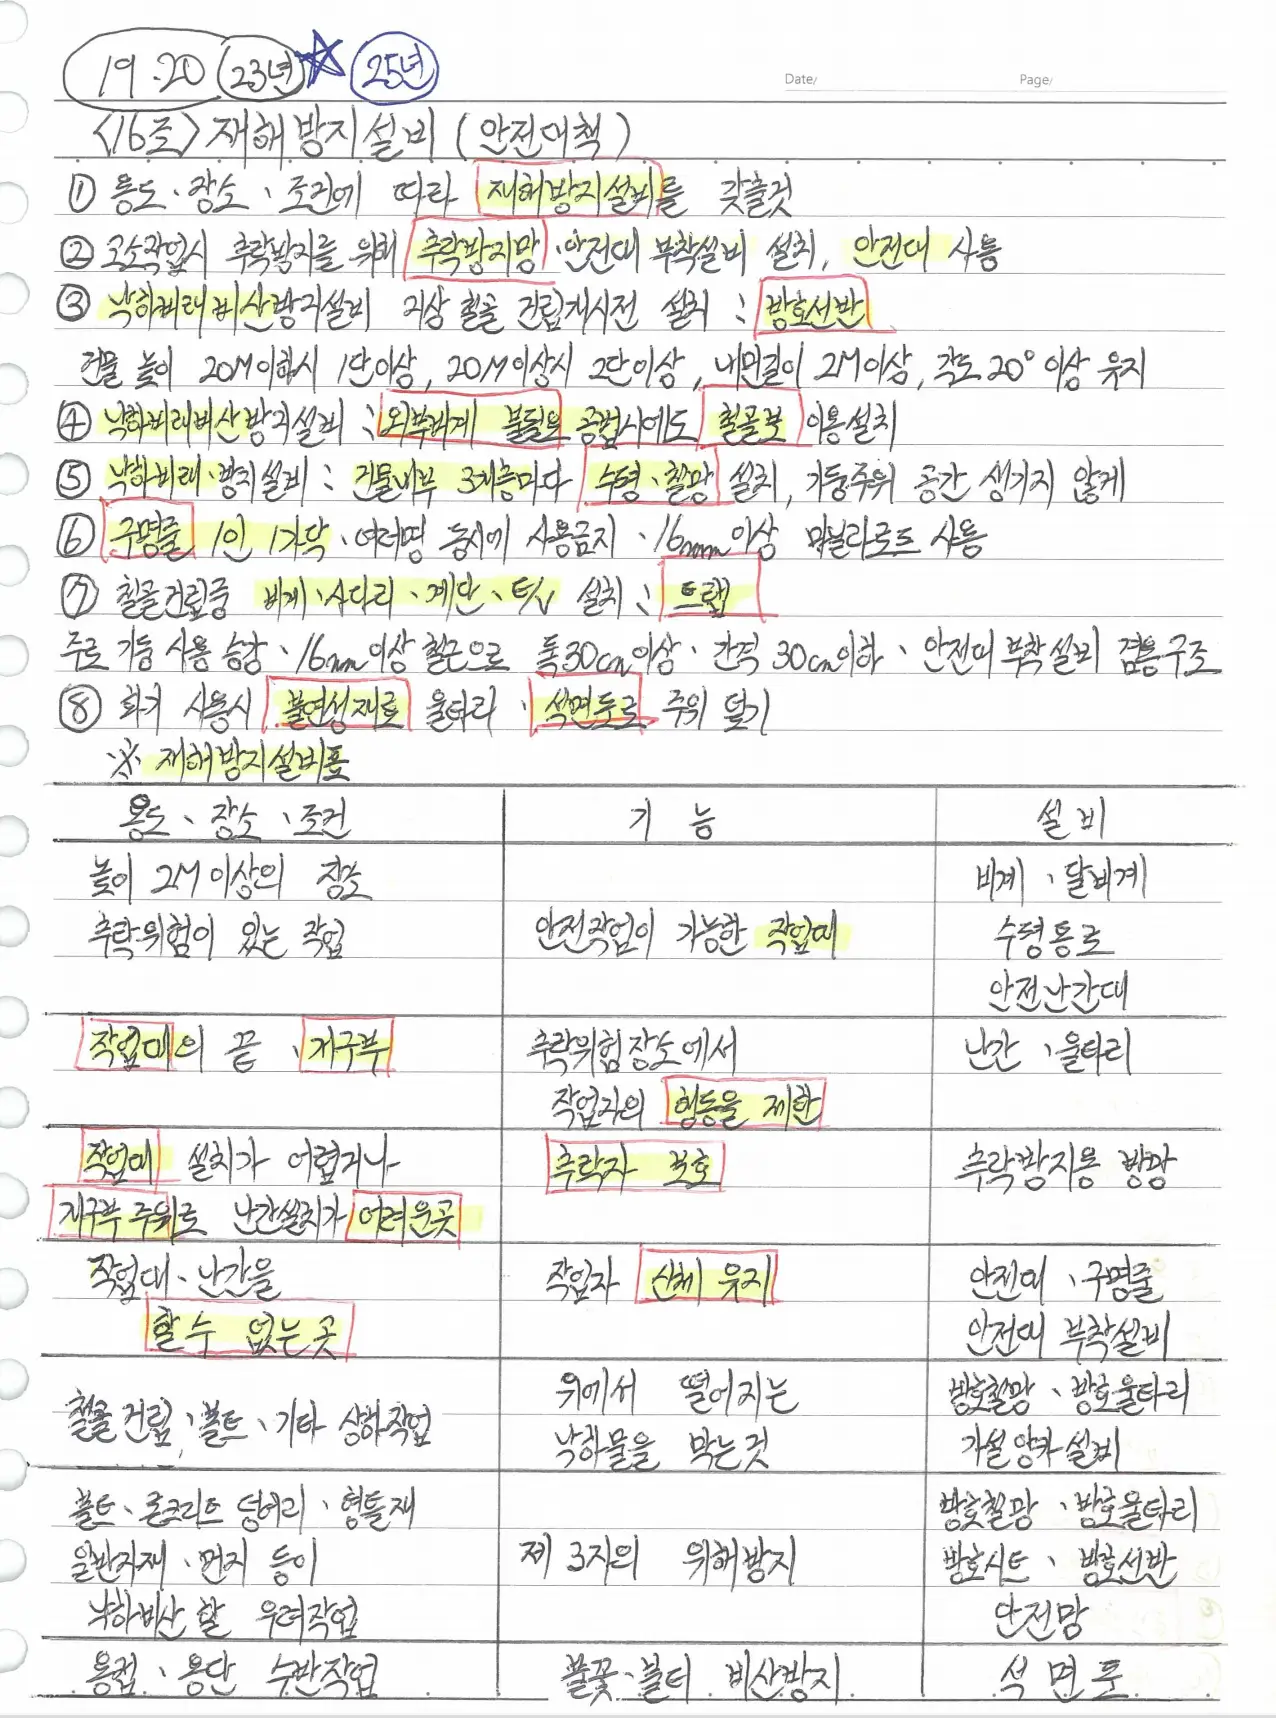 19.20 23년 ☆ 25년
Date/ Page/
<16조> 재해방지설비 (안전대책)
① 용도、장소、조건에 따라 재해방지설비를 갖출것
② 고소작업시 추락방지를 위해 추락방지망、안전대 부착설비 설치, 안전대 사용
③ 낙하비래비산방지설비 지상 철골 건립개시전 설치 : 방호선반
건물 높이 20M이하시 1단이상, 20M이상시 2단이상, 내민길이 2M이상, 각도 20° 이상 유지
④ 낙하비래비산방지설비 : 외부비계 불필요 공법시에도 철골보 이용설치
⑤ 낙하비래、방지설비 : 건물내부 3개층마다 수평、철망 설치, 기둥주위 공간 생기지 않게
⑥ 구명줄 1인 1가닥、여러명 동시에 사용금지、16mm이상 마닐라로프 사용
⑦ 철골건립중 비계、사다리、계단、E/V 설치 : 트랩
주로 기둥 사용 승강、16mm이상 철근으로 폭30cm이상、간격 30cm이하、안전대 부착설비 겸용구조
⑧ 화기 사용시 불연성재료 울타리、석면포로 주위 덮기
※ 재해방지설비표
용도、장소、조건 기 능 설 비
높이 2M이상의 장소 비계、달비계
추락위험이 있는 작업 안전작업이 가능한 작업대 수평통로
안전난간대
작업대의 끝、개구부 추락위험장소에서 난간、울타리
작업자의 행동을 제한
작업대 설치가 어렵거나 추락자 보호 추락방지용 방망
개구부 주위로 난간설치가 어려운곳
작업대、난간을 작업자 신체 유지 안전대、구명줄
할 수 없는 곳 안전대 부착설비
위에서 떨어지는 방호철망、방호울타리
철골 건립、볼트、기타 상하작업
낙하물을 막는것 가설앵카설비
볼트、콘크리트 덩어리、형틀재 방호철망、방호울타리
일반자재、먼지 등이 제 3자의 위해방지 방호시트、방호선반
낙하비산 할 우려작업 안전망
용접、용단 수반작업 불꽃、불티 비산방지 석 면 포